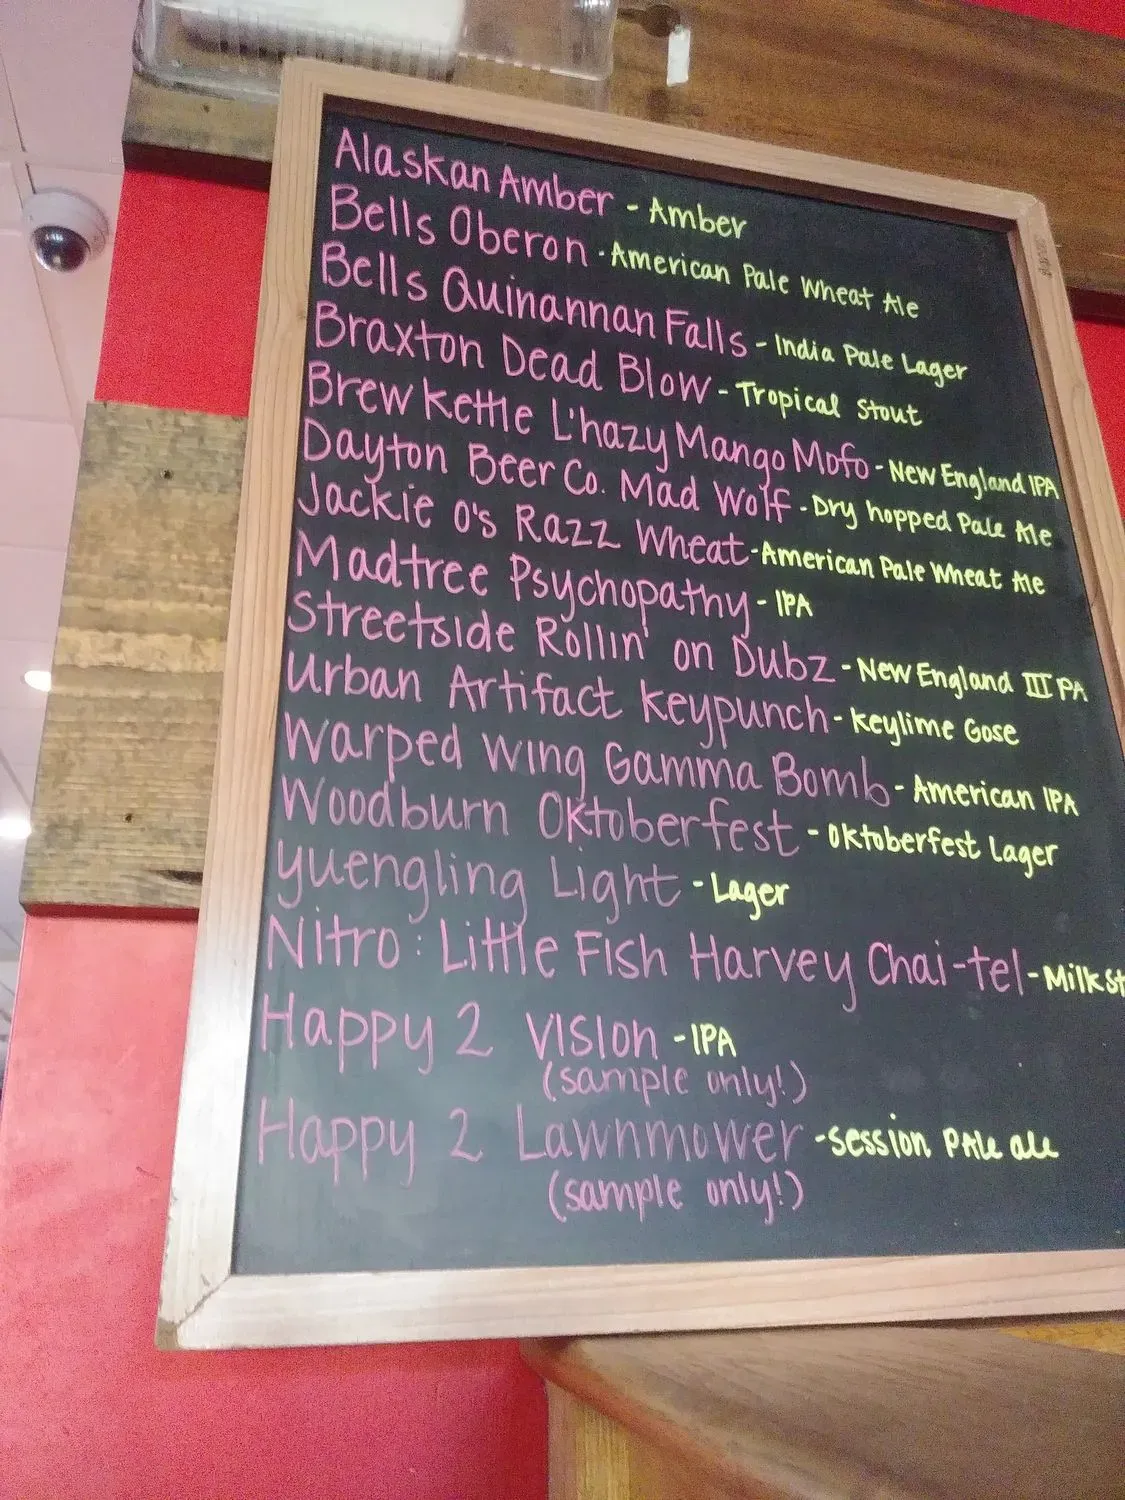 Alaskan Amber - Amber
Bells Oberon - American Pale Wheat Ale
Bells Quinannan Falls - India Pale Lager
Braxton Dead Blow - Tropical Stout
Brew Kettle L'hazy Mango Mofo - New England IPA
Dayton Beer Co. Mad Wolf - Dry hopped Pale Ale
Jackie O's Razz Wheat - American Pale Wheat Ale
Madtree Psychopathy - IPA
Streetside Rollin' on Dubz - New England IIIPA
Urban Artifact Keypunch - Keylime Gose
Warped Wing Gamma Bomb - American IPA
Woodburn Oktoberfest - Oktoberfest Lager
Yuengling Light - Lager
Nitro: Little Fish Harvey Chai-tel - Milk St
Happy 2 Vision - IPA
(sample only!)
Happy 2 Lawnmower - Session Pale ale
(sample only!)